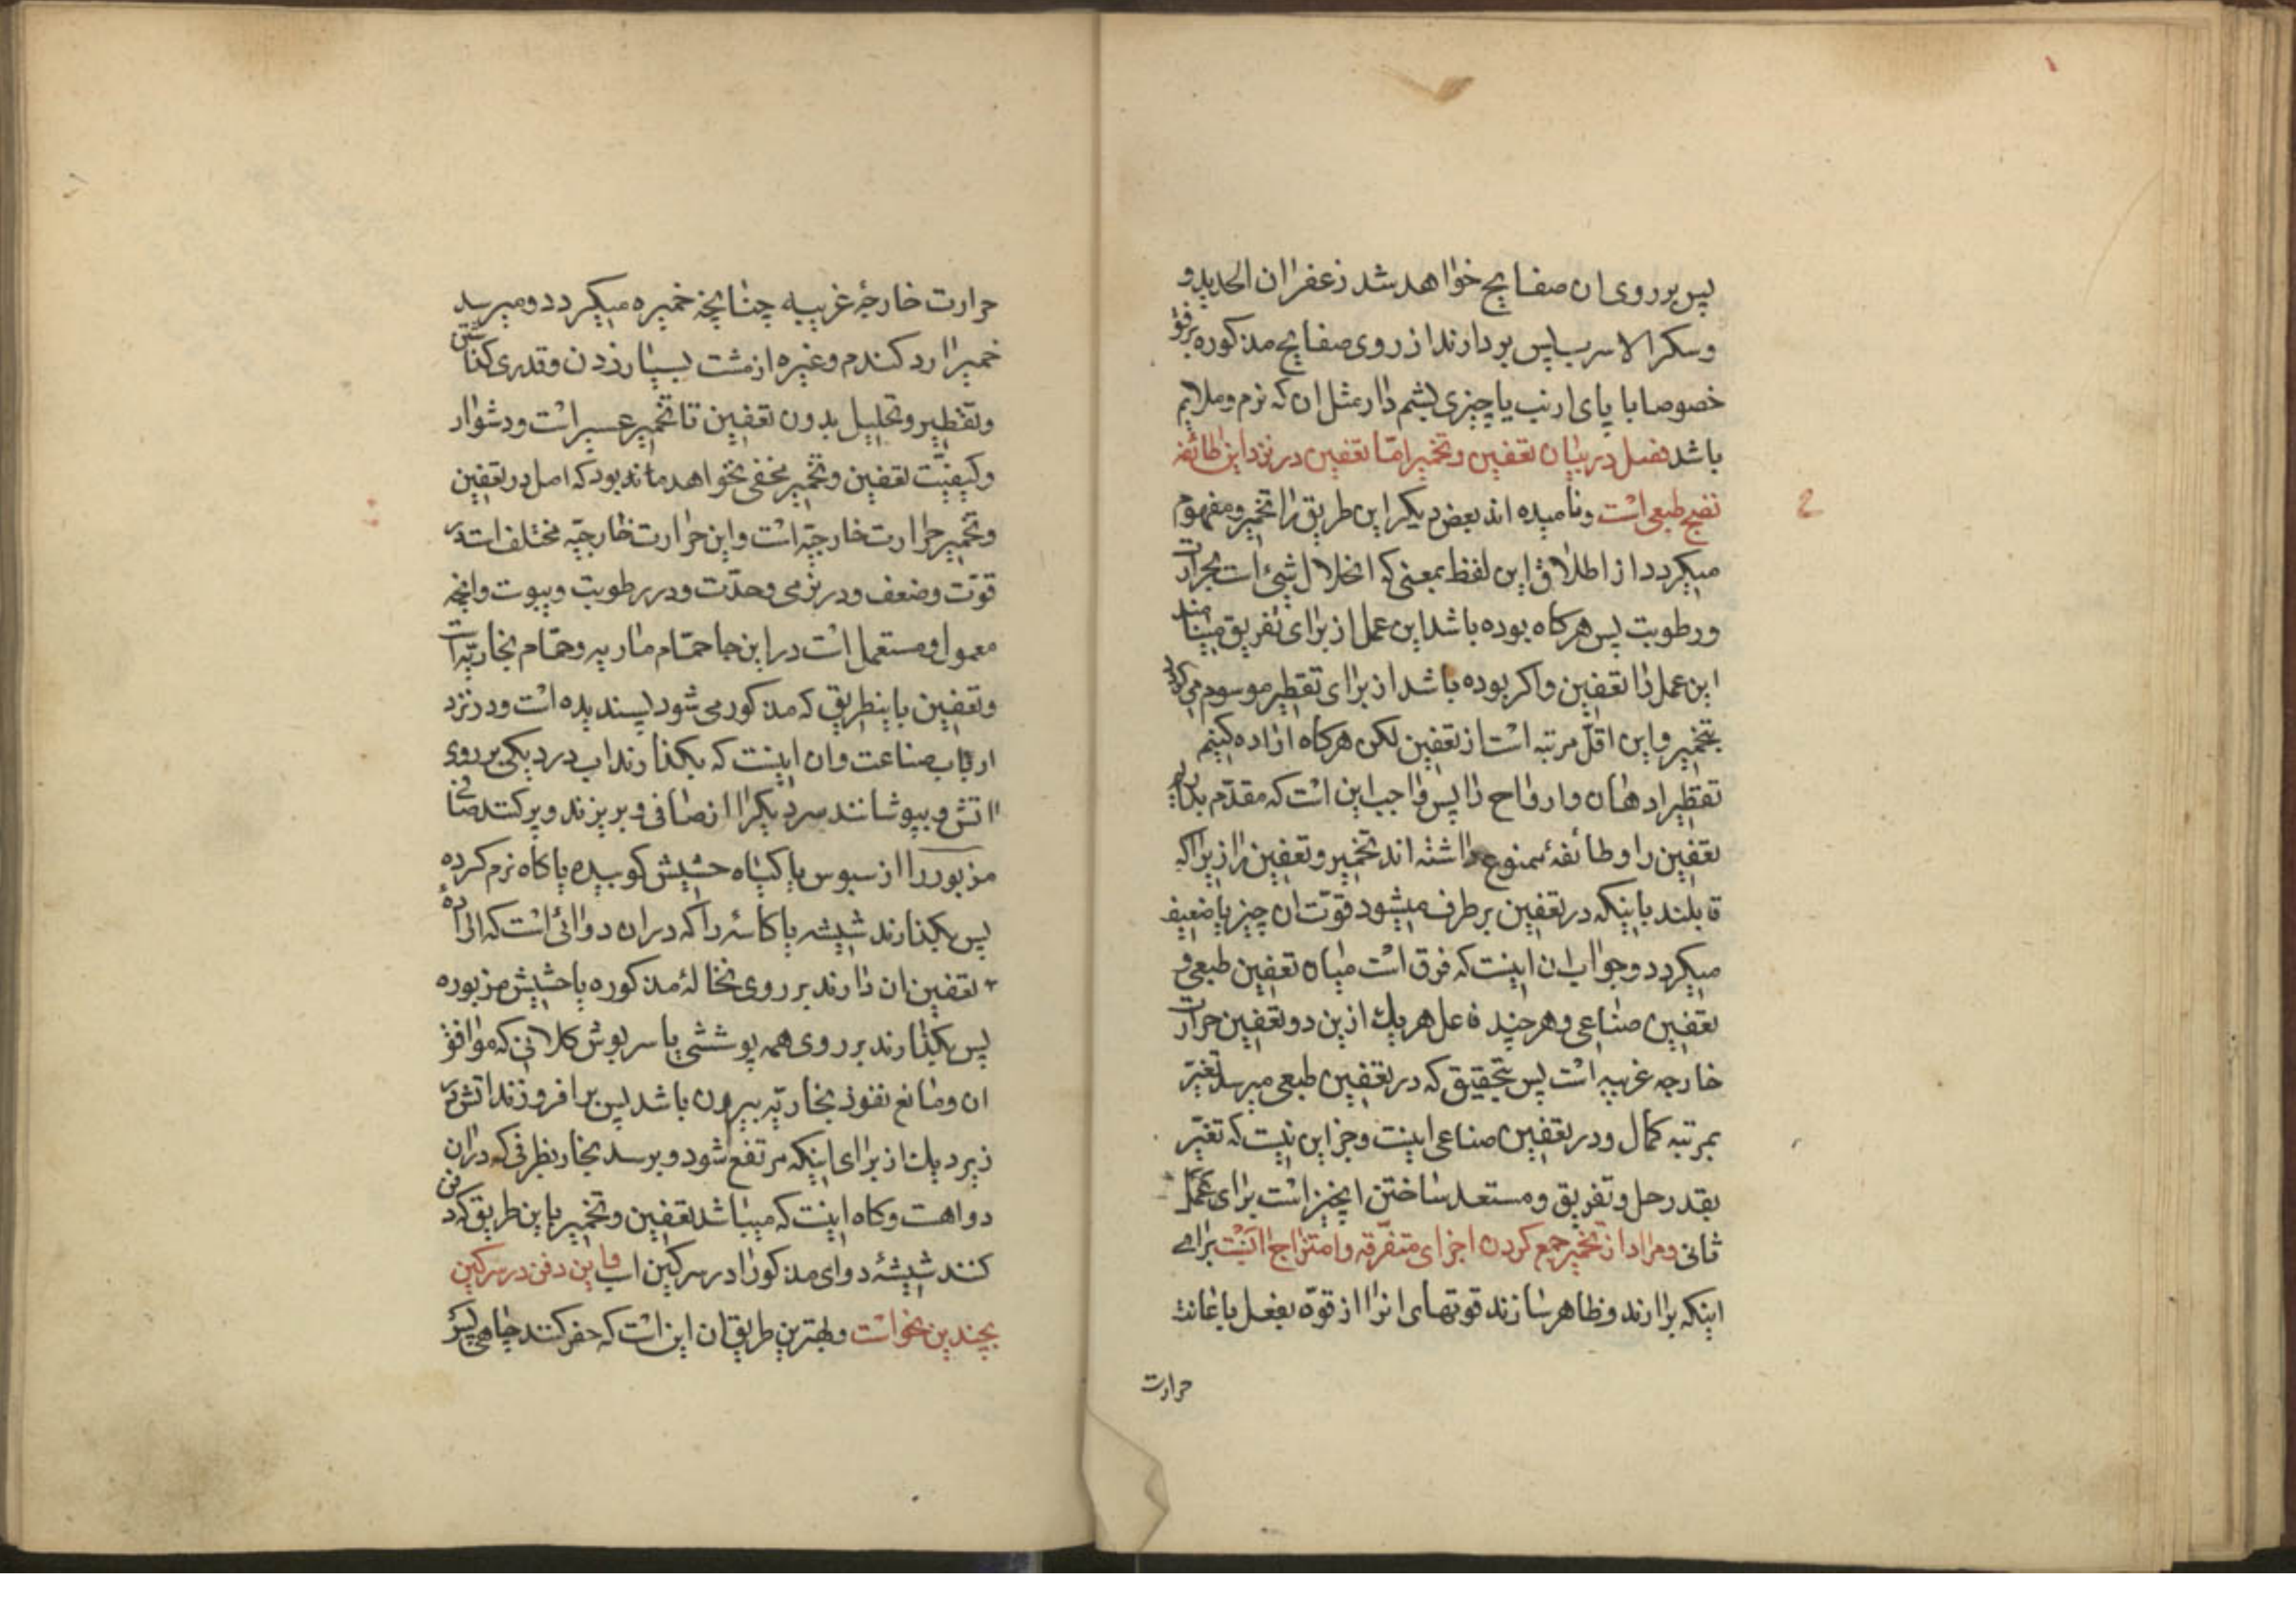 پس بر روی ان صفایح خواهد شد زعفران الحدید و
و سکر الاسرب پس بردارند از روی صفایح مذکوره برفق
خصوصا با پای ارنب یا چیزی پشم دار مثل ان که نرم و ملایم
باشد فصل در بیان تعفین و تخمیر امّا تعفین در نزد این طائفه
نضج طبعی است و نامیده اند بعض دیکر این طریق را تخمیر و مفهوم
میکردد از اطلاق این لفظ بمعنی که انحلال شیٔ است بحرارت
و رطوبت پس هرکاه بوده باشد این عمل از برای تفریق مینامند
این عمل را تعفین و اکر بوده باشد از برای تقطیر موسوم می کردد
بتخمیر و این اقلّ مرتبه است از تعفین لکن هرکاه اراده کنیم
تقطیر ادهان و ارواح را پس واجب این است که مقدّم بداریم
تعفین را و طائفهٔ ممنوع داشته اند تخمیر و تعفین را از براکه
قایلند باینکه در تعفین برطرف میشود قوّت ان چیز یا ضعیف
میکردد و جواب ان اینست که فرق است میان تعفین طبعی و
تعفین صناعی و هرچند فاعل هریك ازین دو تعفین حرارت
خارجه غریبه است پس بتحقیق که در تعفین طبعی میرسد تغیّر
بمرتبه کمال و در تعفین صناعی اینست و جز این نیست که تغیّر
بقدر حل و تفریق و مستعد ساختن انچیز است برای عمل
ثانی و مراد از تخمیر جمع کردن اجزای متفرّقه و امتزاج انست برای
اینکه برارند و ظاهر سازند قوتهای انرا از قوّه بفعل باعانت
حرارت
حرارت خارجهٔ غریبه چنانچه خمیره میکردد و میرسد
خمیر ارد کندم و غیره از مشت بسیار زدن و قدری کذاشتن
و تقطیر و تحلیل بدون تعفین تا تخمیر عسیر است و دشوار
و کیفیّت تعفین و تخمیر مخفی نخواهد ماند بود که اصل در تعفین
و تخمیر حرارت خارجیّه است و این حرارت خارجیّه مختلف است در
قوّت و ضعف و در نرمی و حدّت و در رطوبت و یبوست و انچه
معمول و مستعمل است در این جا حمّام ماریه و حمّام بخاریّه است
و تعفین باینطریق که مذکور می شود پسندیده است و در نزد
ارباب صناعت و ان اینست که بکذارند اب در دیکی بر روی
اتش و بپوشانند سر دیکر را از صافی و بریزند و پر کنند صافی
مزبور را از سبوس یا کیاه حشیش کوبیده یا کاه نرم کرده
پس بکذارند شیشه یا کاسهٔ را که در ان دوائی است که ارادهٔ
تعفین ان دارند بر روی نخالهٔ مذکوره یا حشیش مزبوره
پس بکذارند بر روی همه پوششی یا سرپوش کلانی که موافق
ان و مانع نفوذ بخاریّه بیرون باشد پس برافروزند اتش در
زیر دیك از برای اینکه مرتفع شود و برسد بخار بظرفی که در ان
دوا هست و کاه اینست که میباشد تعفین و تخمیر باین طریق که دفن
کنند شیشهٔ دوای مذکور را در سرکین اسب و این دفن در سرکین
بچندین نحو است و بهترین طریق ان این است که حفر کنند چاهی پس